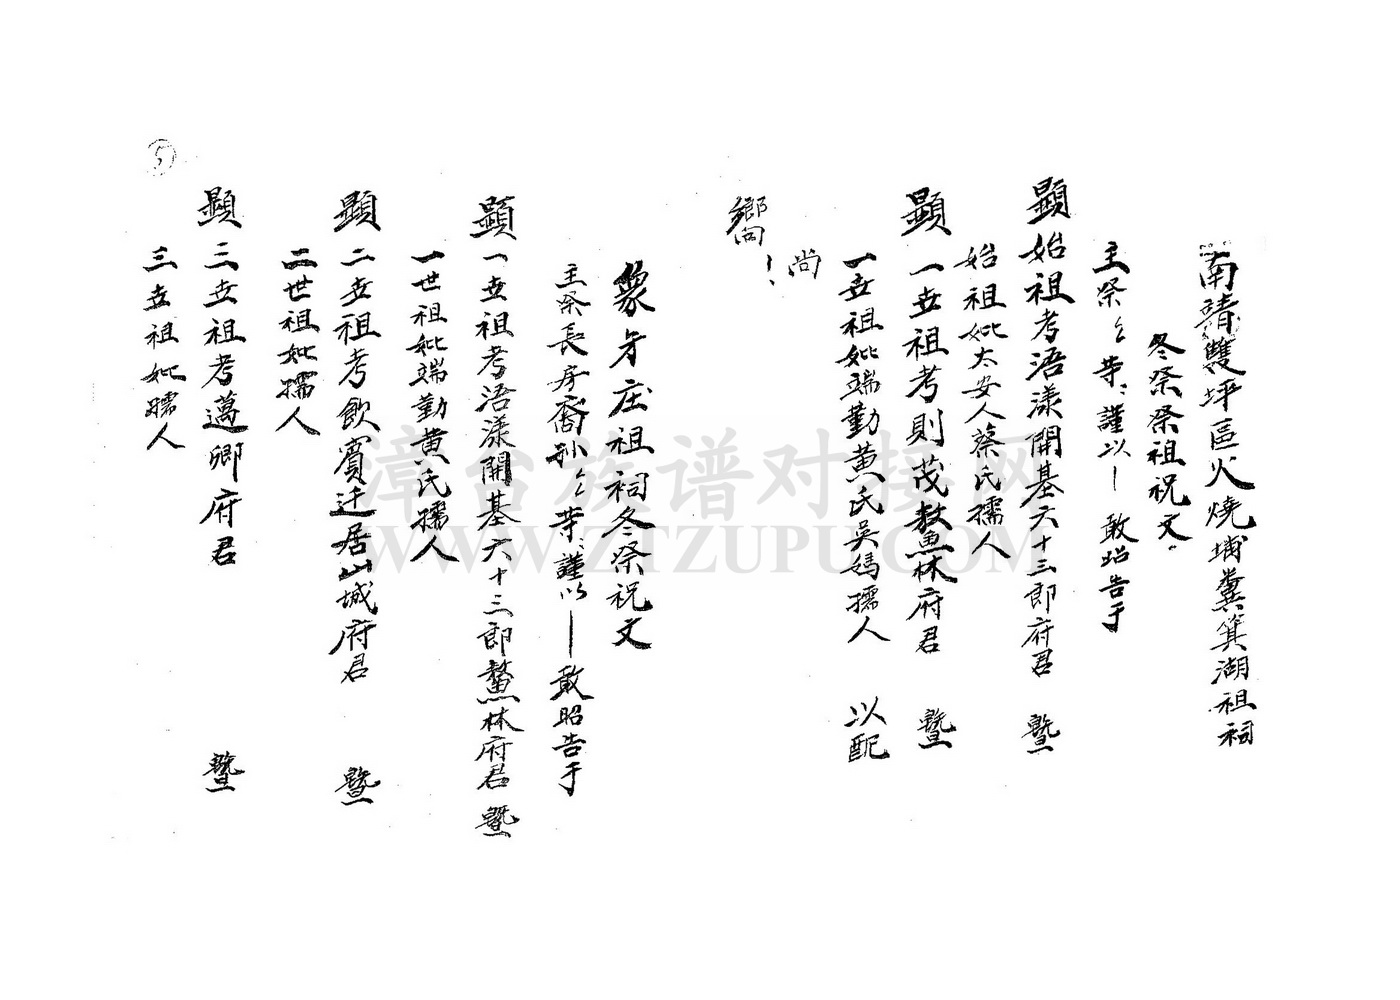 南靖雙坪區火燒埔糞箕湖祖祠
冬祭祭祖祝文
主祭厶厶等謹以— 敢昭告于
顯始祖考浯漾開基六十三郎府君 暨
始祖妣太安人蔡氏孺人
顯一世祖考則茂敖林府君 暨
一世祖妣端勤黄氏吴媽孺人 以配
尚
嚮!
象牙庄祖祠冬祭祝文
主祭長房裔孙厶厶等謹以—敢昭告于
顯一世祖考浯漾開基六十三郎鰲林府君暨
一世祖妣端勤黄氏孺人
顯二世祖考飲賓迁居山城府君 暨
二世祖妣孺人
顯三世祖考邁卿府君 暨
三世祖妣孺人
5
漳台族谱对接网
WWW.ZTZUPU.COM